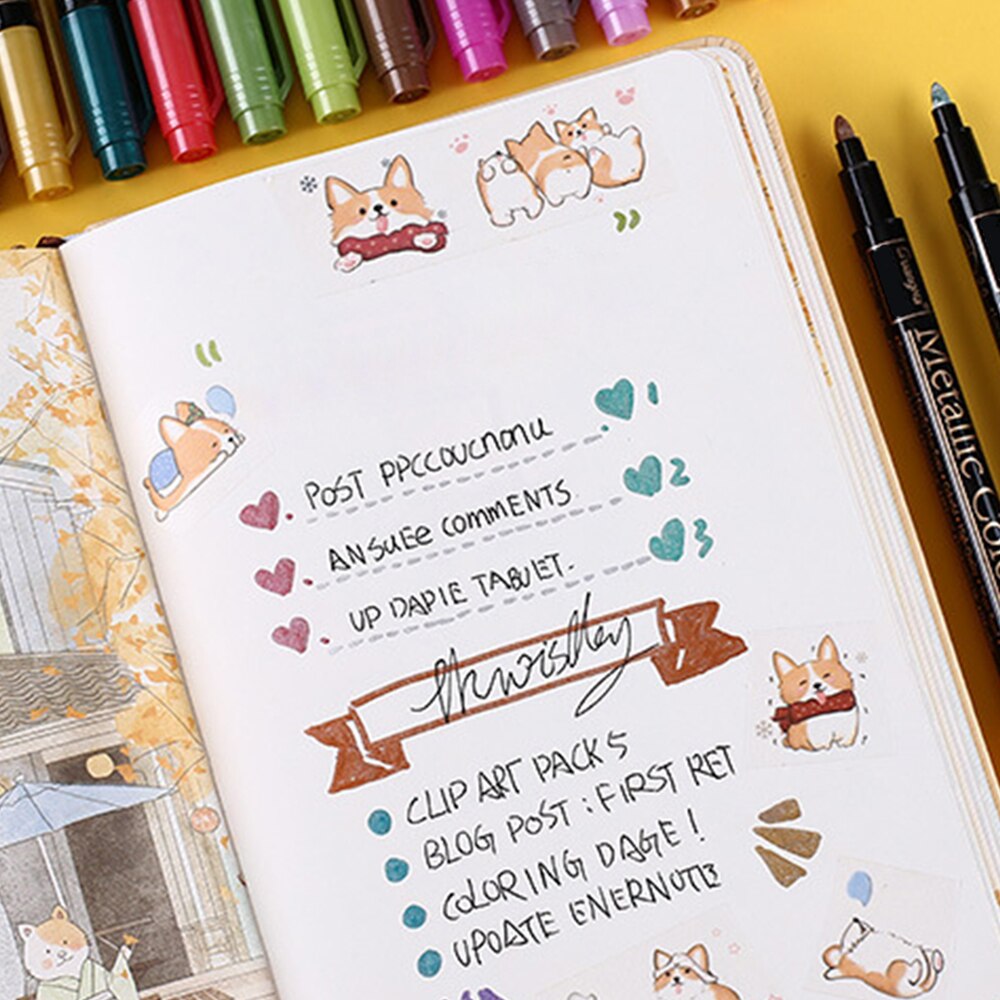 1
POST PPCCOUCNONU
2
ANSUEe COMMENTS
3
UP DAPIE TABUET.
CLIP ART PACK 5
BLOG POST : FIRST RET
COLORING DAGE !
UPOATE ENERNOTE
Metallic Color